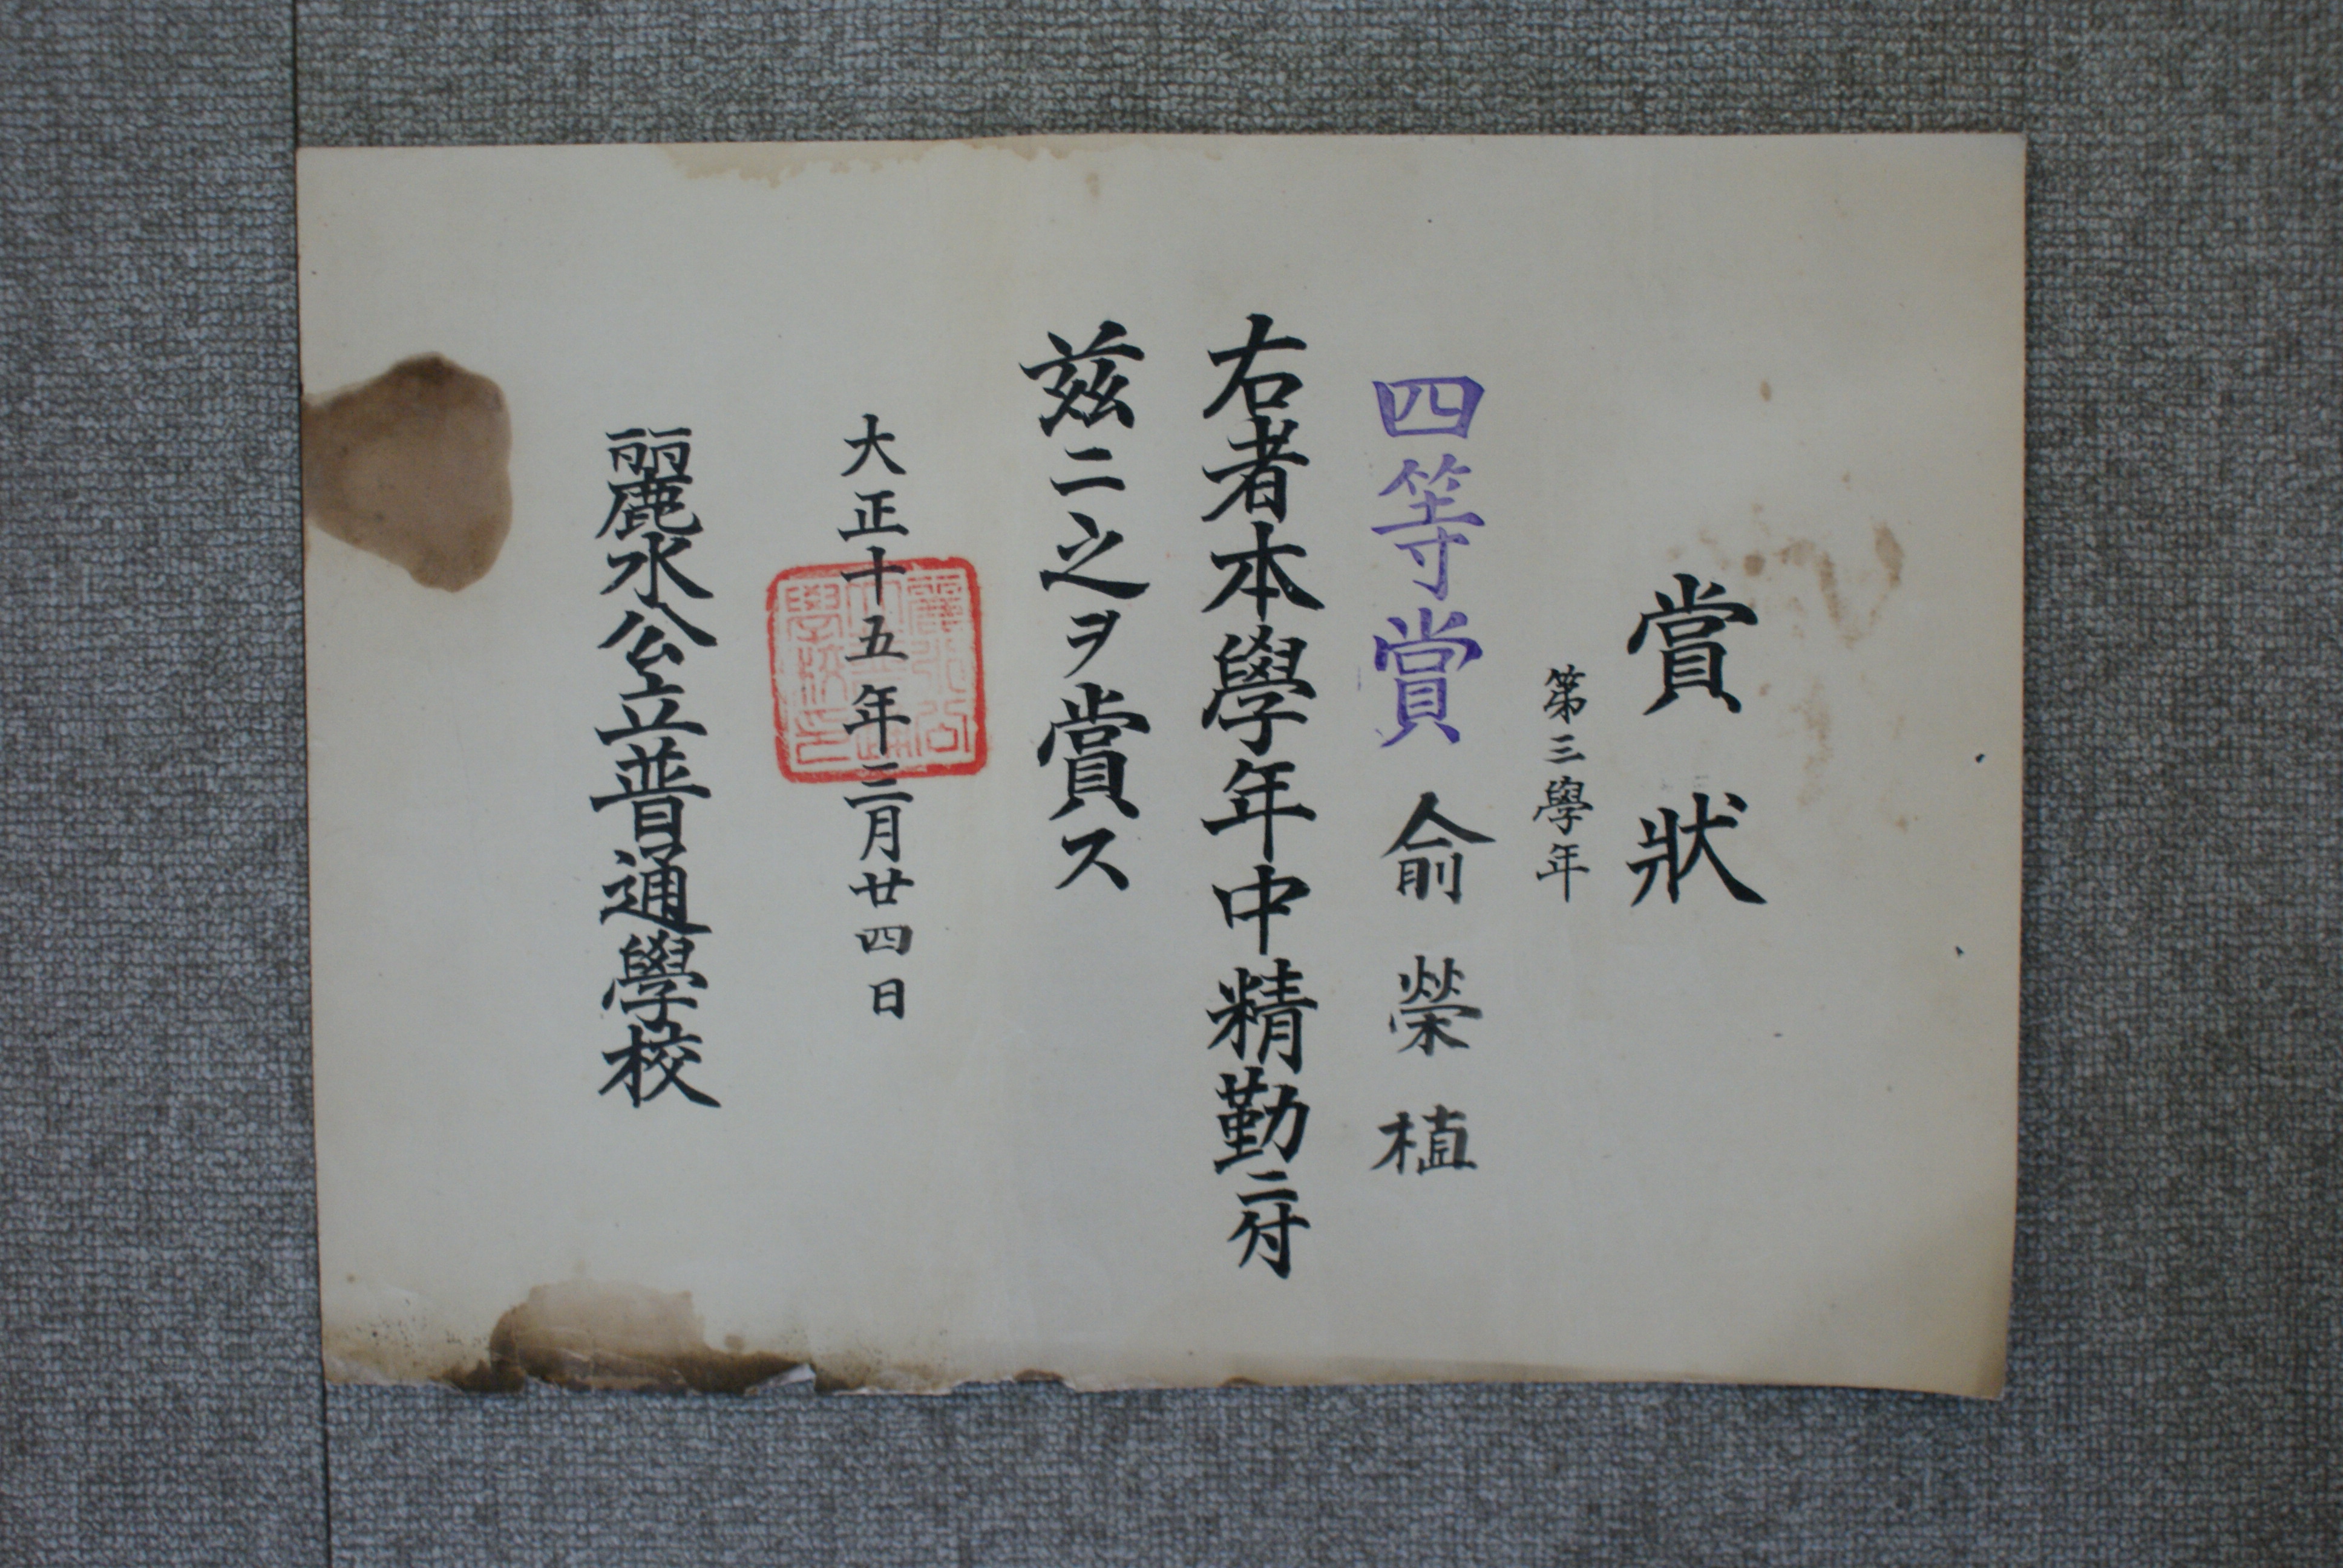 賞狀
第三學年
四等賞 俞榮植
右者本學年中精勤ニ付
玆ニ之ヲ賞ス
大正十五年三月廿四日
麗水公立普通學校
麗水公
立普通
學校印